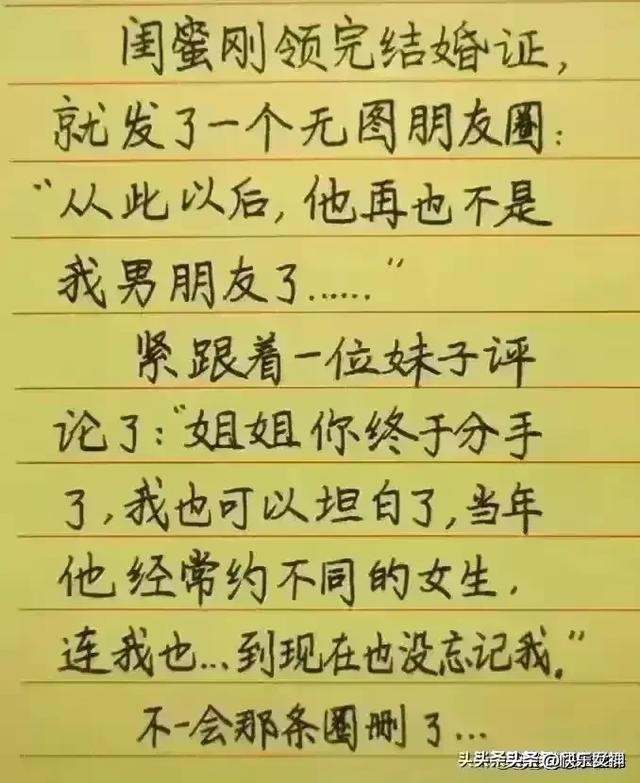 闺蜜刚领完结婚证，
就发了一个无图朋友圈：
“从此以后，他再也不是
我男朋友了……“
紧跟着一位妹子评
论了：“姐姐你终于分手
了，我也可以坦白了，当年
他经常约不同的女生，
连我也…到现在也没忘记我。”
不一会那条圈删了…
头头条头条@快乐女捕